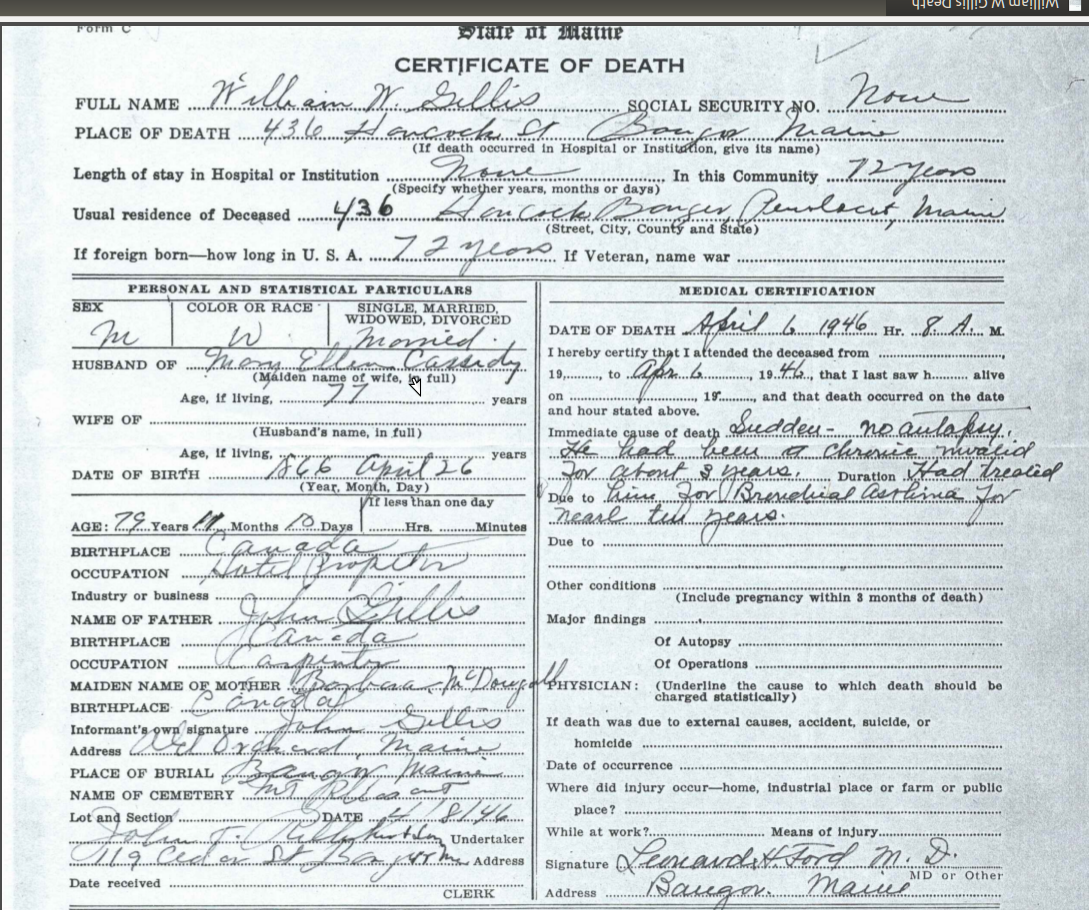 William W Gillis Death
Form C
State of Maine
CERTIFICATE OF DEATH
FULL NAME William W. Gillis SOCIAL SECURITY NO. None
PLACE OF DEATH 436 Hancock St Bangor Maine
(If death occurred in Hospital or Institution, give its name)
Length of stay in Hospital or Institution None In this Community 72 years
(Specify whether years, months or days)
Usual residence of Deceased 436 Hancock Bangor, Penobscot, Maine
(Street, City, County and State)
If foreign born—how long in U. S. A. 72 years If Veteran, name war
PERSONAL AND STATISTICAL PARTICULARS
SEX COLOR OR RACE SINGLE, MARRIED, WIDOWED, DIVORCED
M W Married
HUSBAND OF Mary Ellen Cassidy
(Maiden name of wife, in full)
Age, if living, 77 years
WIFE OF
(Husband's name, in full)
Age, if living, years
DATE OF BIRTH 1866 April 26
(Year, Month, Day)
If less than one day
AGE: 79 Years 11 Months 10 Days Hrs. Minutes
BIRTHPLACE Canada
OCCUPATION Hotel
Industry or business
NAME OF FATHER John Gillis
BIRTHPLACE Canada
OCCUPATION Carpenter
MAIDEN NAME OF MOTHER Barbara McDougall
BIRTHPLACE Canada
Informant's own signature John Gillis
Address Old Orchard, Maine
PLACE OF BURIAL Bangor Maine
NAME OF CEMETERY Mt Pleasant
Lot and Section DATE 4/8/46
John T. Undertaker
119 Cedar St Bangor Me Address
Date received
CLERK
MEDICAL CERTIFICATION
DATE OF DEATH April 6 1946 Hr. 8 A. M.
I hereby certify that I attended the deceased from
19, to Apr 6, 1946, that I last saw h alive
on , 19, and that death occurred on the date
and hour stated above.
Immediate cause of death Sudden - no autopsy.
He had been a chronic invalid
for about 3 years. Duration Had treated
Due to him for Bronchial Asthma for
nearl ten years.
Due to
Other conditions
(Include pregnancy within 3 months of death)
Major findings
Of Autopsy
Of Operations
PHYSICIAN: (Underline the cause to which death should be
charged statistically)
If death was due to external causes, accident, suicide, or
homicide
Date of occurrence
Where did injury occur—home, industrial place or farm or public
place?
While at work? Means of injury
Signature Leonard H Ford M. D.
MD or Other
Address Bangor. Maine